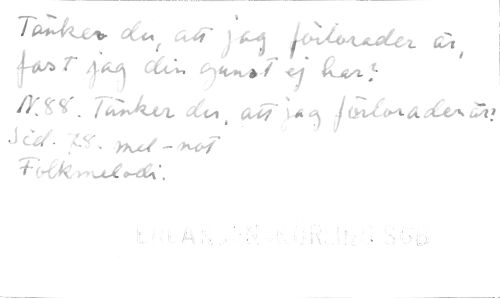 Tänker du, att jag förlorader är,
fast jag din gunst ej har?
N.88. Tänker du, att jag förlorader är?
Sid. 78. mel-not
Folkmelodi.